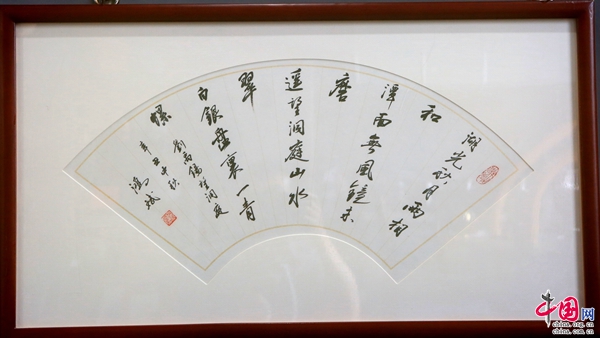 湖光秋月兩相
和
潭面無風鏡未
磨
遥望洞庭山水
翠
白銀盤裏一青
螺
劉禹錫望洞庭
辛丑中秋
鴻斌
中国网
china.org.cn
china.com.cn